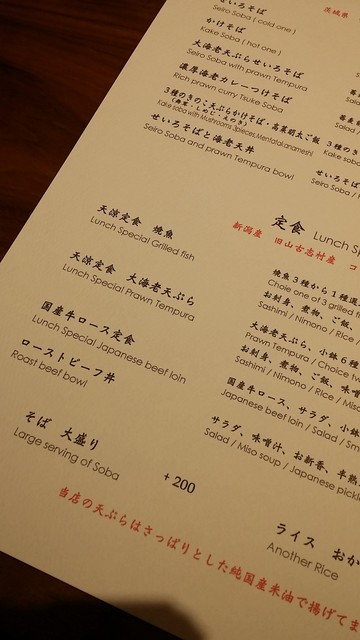 せいろそば
Seiro Soba ( cold one )
茨城県
かけそば
Kake Soba ( hot one )
大海老天ぷらせいろそば
Seiro Soba with prawn Tempura
濃厚海老カレーつけそば
Rich prawn curry Tsuke Soba
3種のきのこ天ぷらかけそば・高菜明太ご飯
Kake soba with Mushrooms 3pieces,Mentaitakanameshi
せいろそばと海老天丼
Seiro Soba and prawn Tempura bowl
3種のき
Kake sob
せいろそ
Seiro Soba /
定食 Lunch Sp
新潟産 旧山古志村産 コ
天涼定食 焼魚
Lunch Special Grilled fish
焼魚3種から1種選
Choie one of 3 grilled f
お刺身、煮物、ご飯、
Sashimi / Nimono / Rice /
天涼定食 大海老天ぷら
Lunch Special Prawn Tempura
大海老天ぷら、小鉢6種
Prawn Tempura / Choice
お刺身、煮物、ご飯、味噌
Sashimi / Nimono / Rice / Miso
国産牛ロース定食
Lunch Special Japanese beef loin
国産牛ロース、サラダ、小鉢
Japanese beef loin / Salad / Sm
ローストビーフ丼
Roast beef bowl
サラダ、味噌汁、お新香、半熟
Salad / Miso soup / Japanese pickl
そば 大盛り
Large serving of Soba
+200
ライス おか
Another Rice
当店の天ぷらはさっぱりとした純国産米油で揚げてま